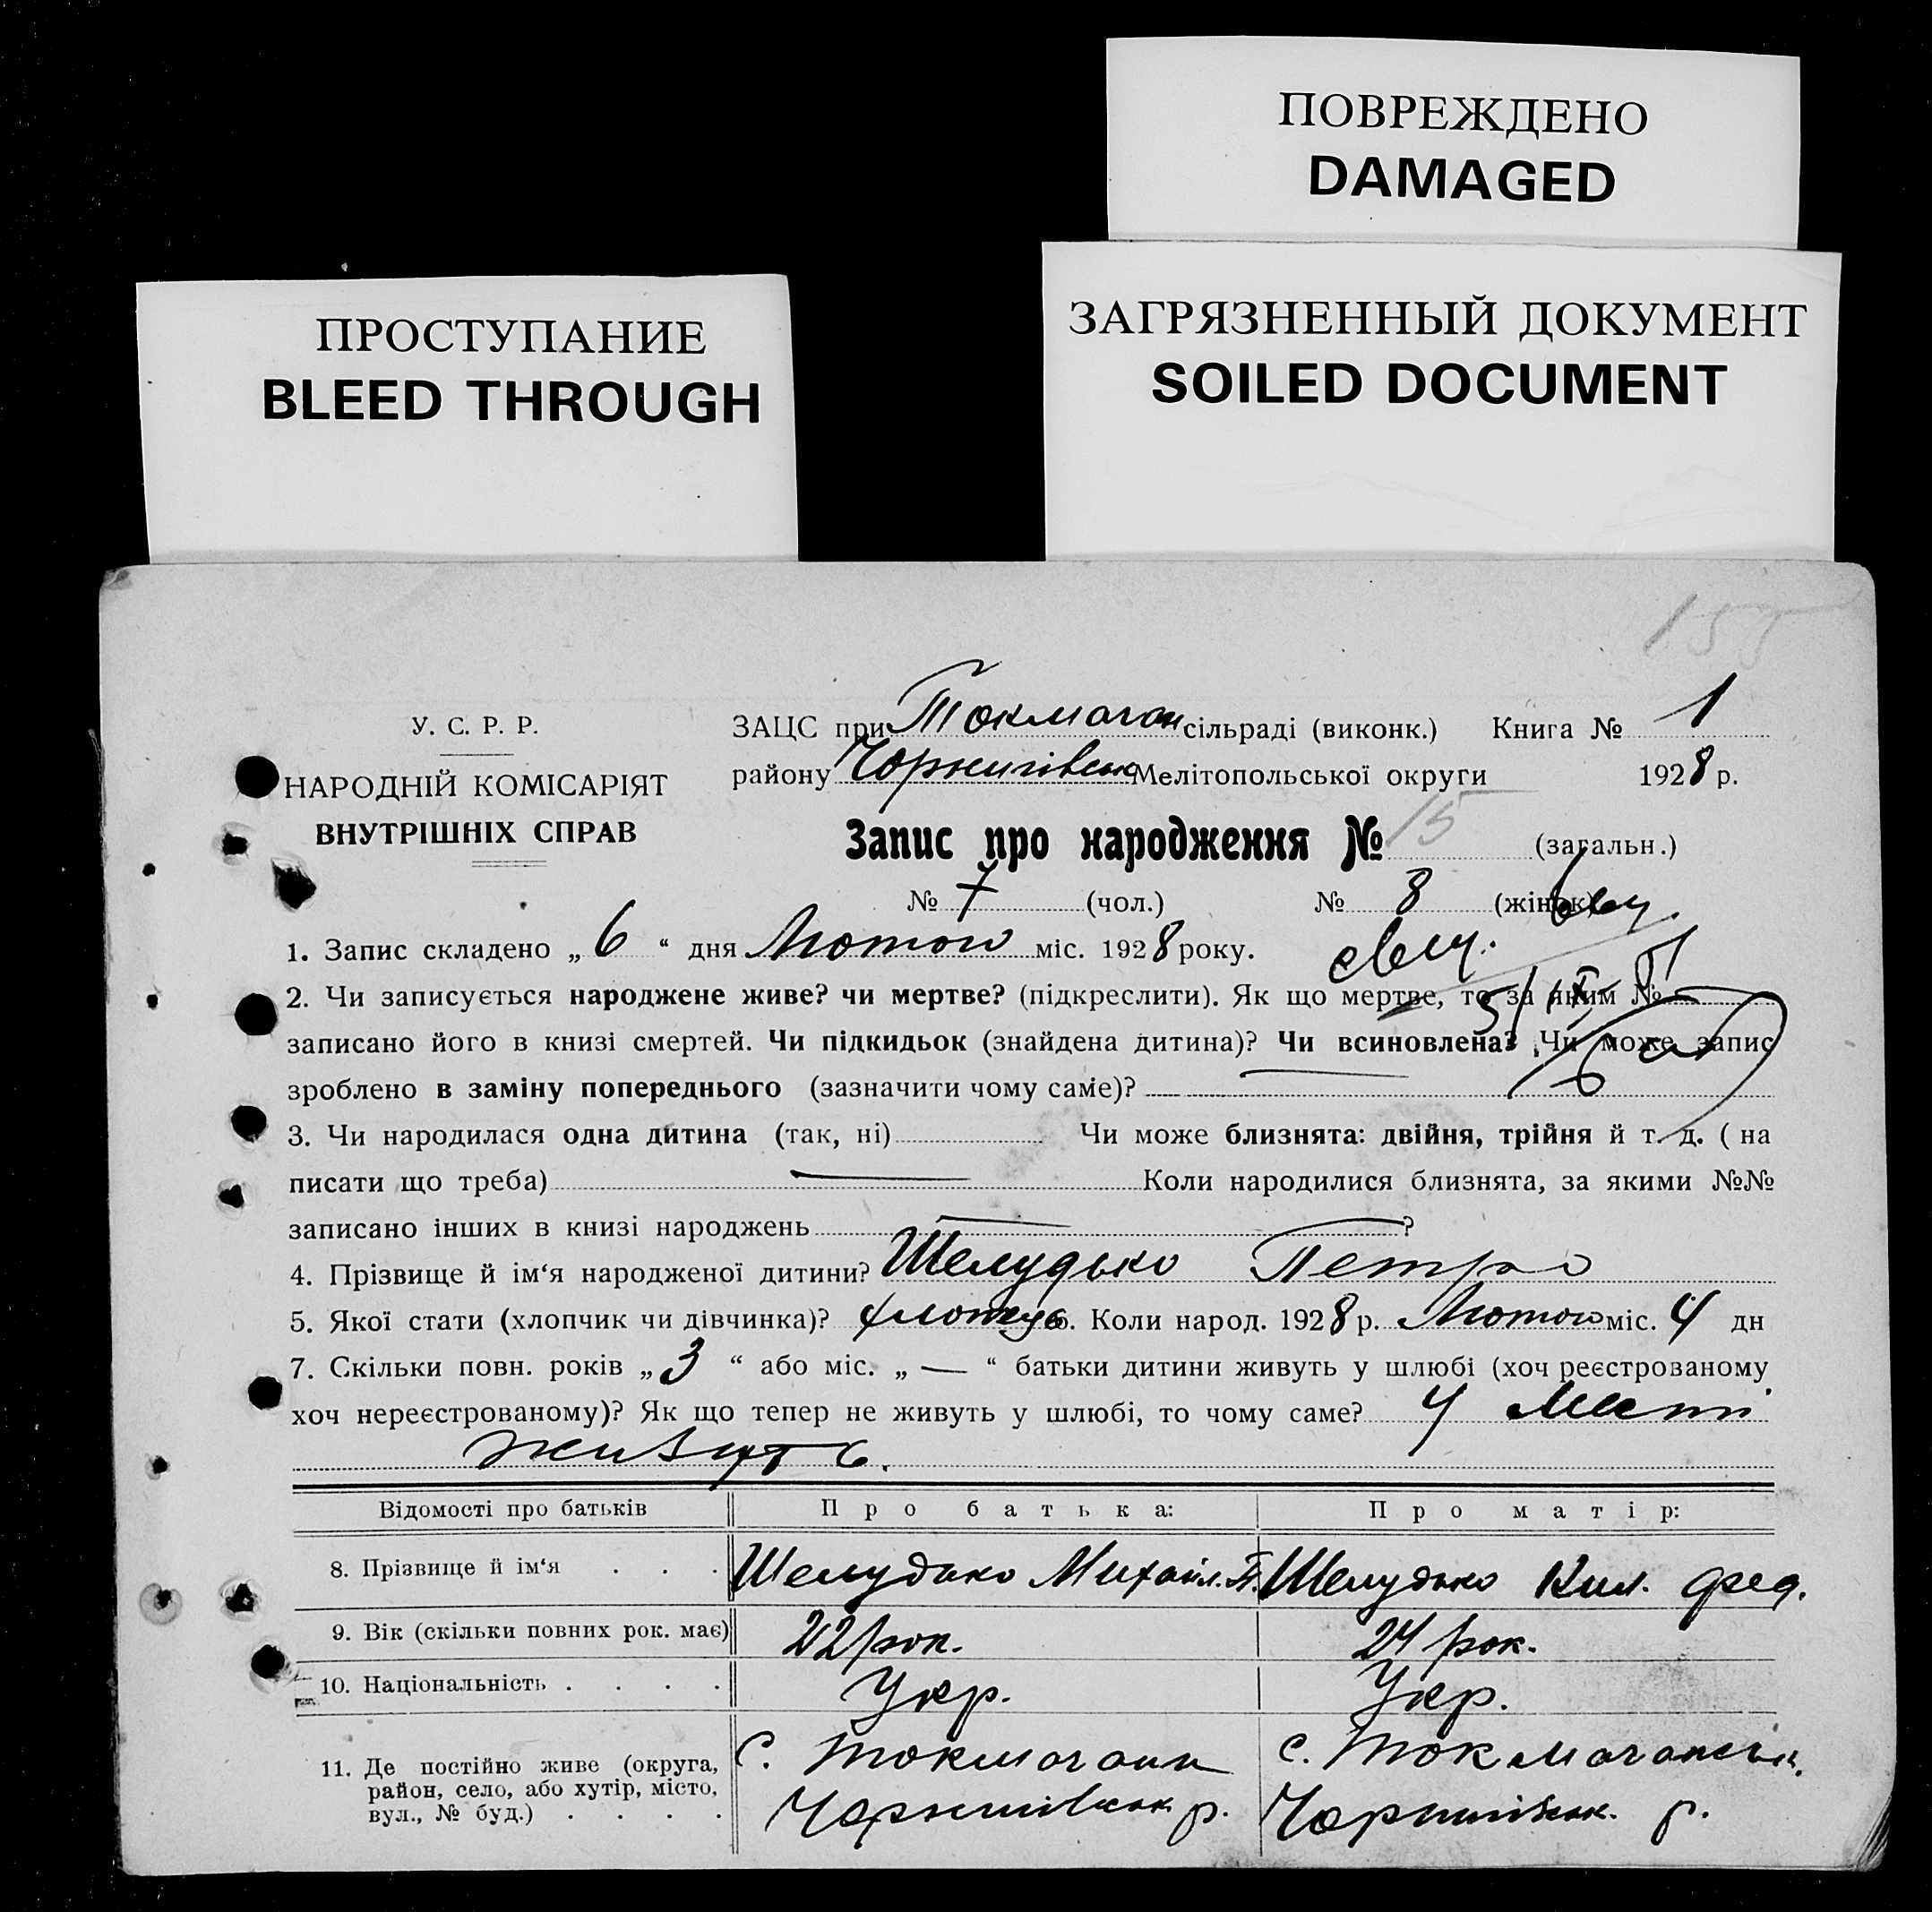 ПОВРЕЖДЕНО
DAMAGED
ПРОСТУПАНИЕ
BLEED THROUGH
ЗАГРЯЗНЕННЫЙ ДОКУМЕНТ
SOILED DOCUMENT
155
У. С. Р. Р.
НАРОДНІЙ КОМІСАРІЯТ
ВНУТРІШНІХ СПРАВ
ЗАЦС при Токмачан сільраді (виконк.) Книга № 1
району Чорнигівськ Мелітопольської округи 1928 р.
Запис про народження № 15 (загальн.)
№ 7 (чол.) № 8 (жінок)
1. Запис складено „ 6 “ дня Лютого міс. 1928 року.
2. Чи записується народжене живе? чи мертве? (підкреслити). Як що мертве, то за яким №
записано його в книзі смертей. Чи підкидьок (знайдена дитина)? Чи всиновлена? Чи може запис
зроблено в заміну попереднього (зазначити чому саме)?
3. Чи народилася одна дитина (так, ні) Чи може близнята: двійня, трійня й т. д. ( на
писати що треба) — Коли народилися близнята, за якими №№
записано інших в книзі народжень — ?
4. Прізвище й ім‘я народженої дитини? Шелудько Петро
5. Якої стати (хлопчик чи дівчинка)? 6. Коли народ. 1928 р. Лютого міс. 4 дн
7. Скільки повн. років „ 3 “ або міс. „ — “ батьки дитини живуть у шлюбі (хоч реєстрованому
хоч нереєстрованому)? Як що тепер не живуть у шлюбі, то чому саме? У
живуть.
Відомості про батьків Про батька: Про матір:
8. Прізвище й ім‘я . . . Шелудько Михайл. П. Шелудько Кил. Фед.
9. Вік (скільки повних рок. має) 22 рок. 24 рок.
10. Національність . . . . Укр. Укр.
11. Де постійно живе (округа, с. Токмачани с. Токмачанськ.
район, село, або хутір, місто,
вул., № буд.) . . . . Чорнигівськ р. Чорнигівськ. р.